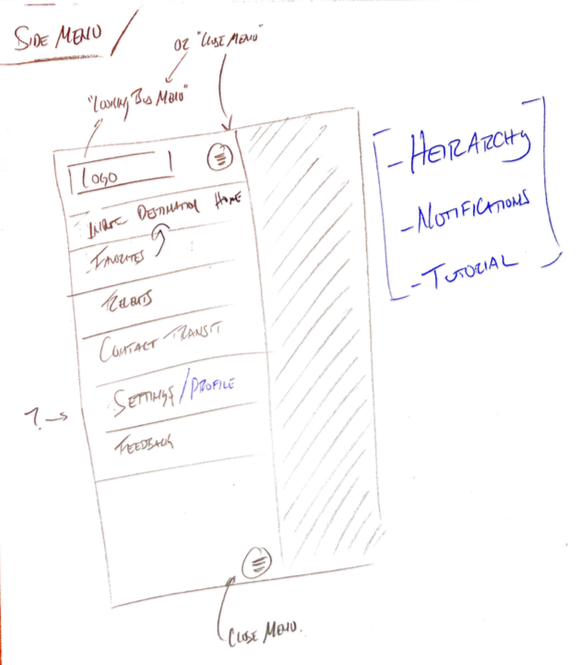 SIDE MENU /
OR "CLOSE MENU"
"LOOKING BUS MENU"
LOGO
DESTINATION HOME
FAVORITES
CONTACT TRANSIT
SETTINGS/PROFILE
? →
FEEDBACK
CLOSE MENU.
- HEIRARCHY
- NOTIFICATIONS
- TUTORIAL